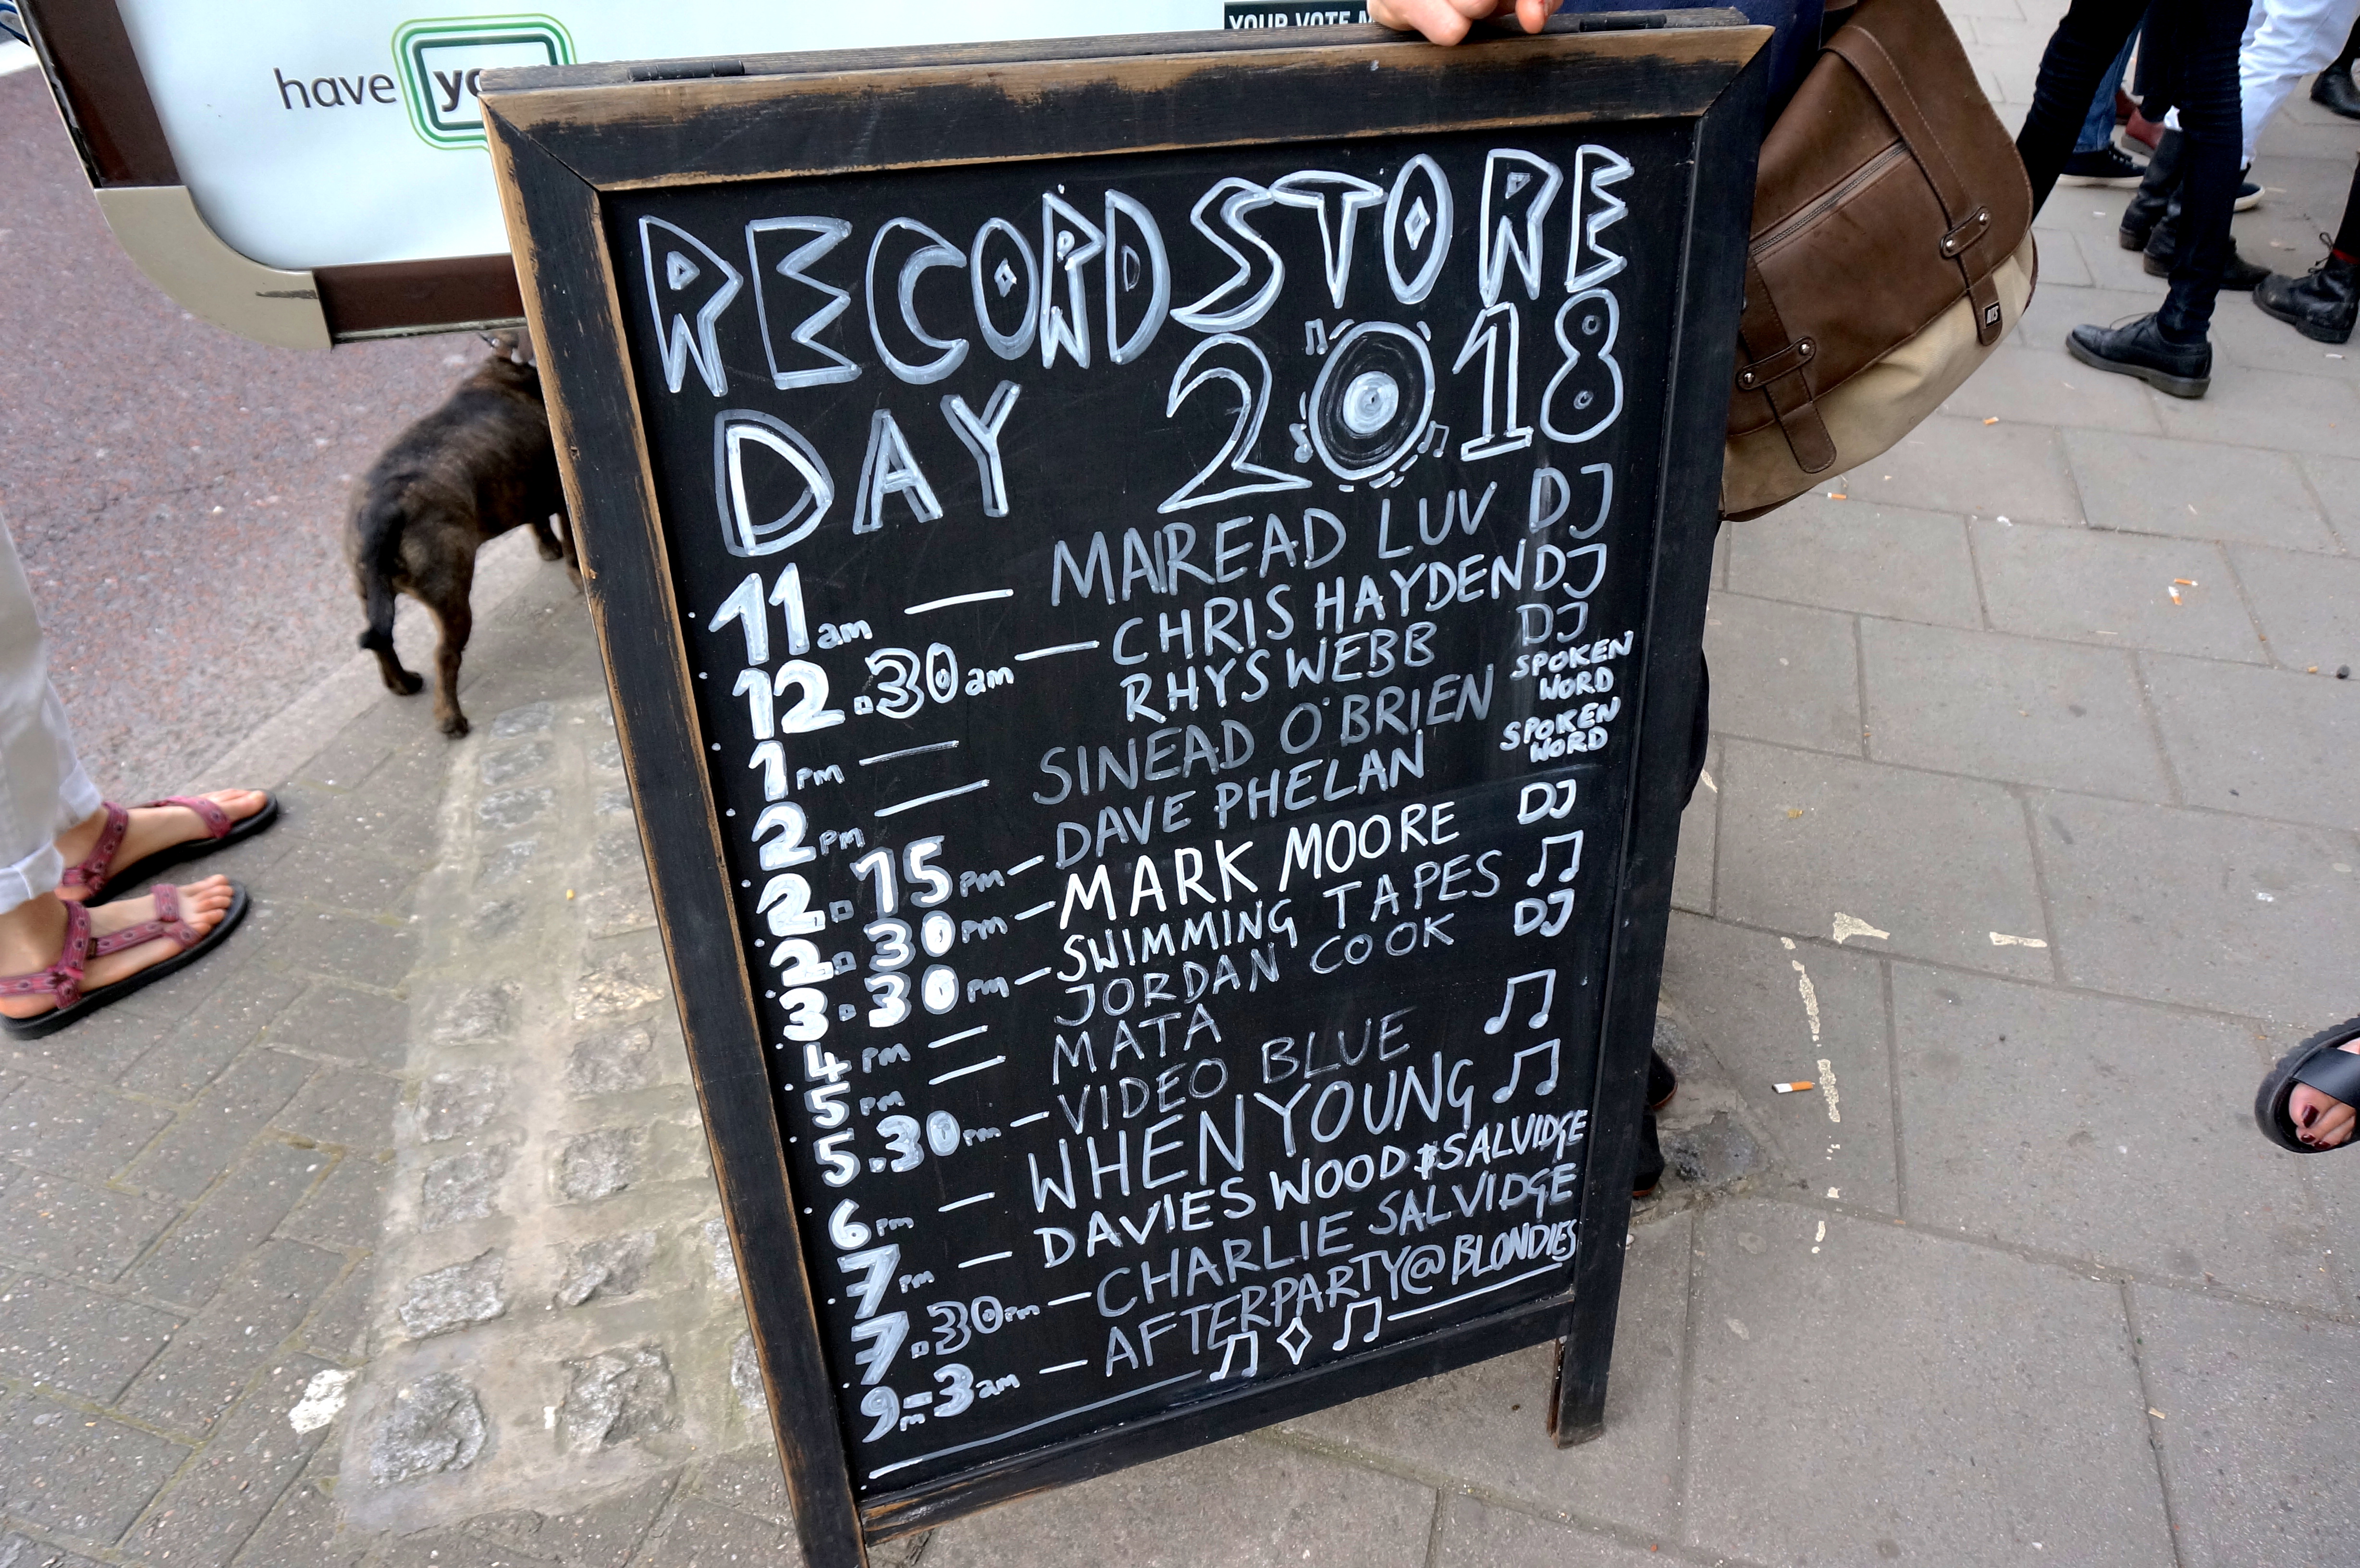 have yo
YOUR VOTE M
RECORD STORE
DAY 2018
11am — MAIREAD LUV DJ
12.30am — CHRIS HAYDEN DJ
1PM — RHYS WEBB DJ
2PM — SINEAD O'BRIEN SPOKEN WORD
2.15PM — DAVE PHELAN SPOKEN WORD
2.30PM — MARK MOORE DJ
3.30PM — SWIMMING TAPES
4PM — JORDAN COOK DJ
5PM — MATA
5.30PM — VIDEO BLUE
6PM — WHEN YOUNG
7PM — DAVIES WOOD & SALVIDGE
7.30PM — CHARLIE SALVIDGE
9PM-3am — AFTERPARTY @ BLONDIES